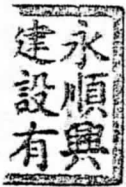 永順興
建設有